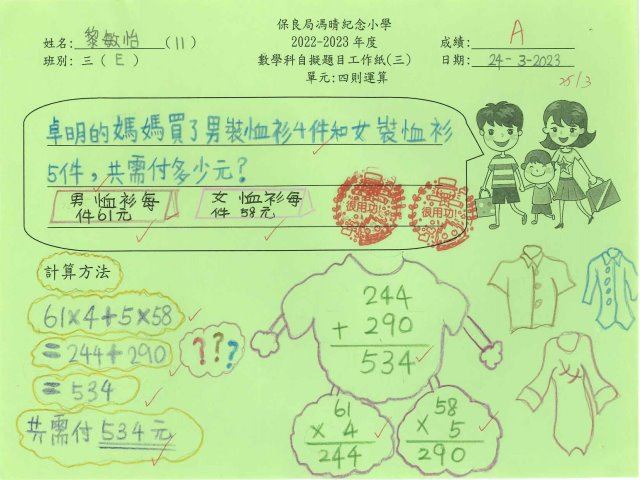 保良局馮晴紀念小學
姓名: 黎敏怡 (11) 2022-2023 年度 成績: A
班別: 三 (E) 數學科自擬題目工作紙(三) 日期: 24-3-2023
單元:四則運算 25/3
卓明的媽媽買了男裝恤衫4件和女裝恤衫
5件，共需付多少元?
男恤衫每件61元
女恤衫每件58元
很用功!
很用功!
計算方法
61×4+5×58
=244+290
=534
共需付534元
???
244
+ 290
534
61
× 4
244
58
× 5
290